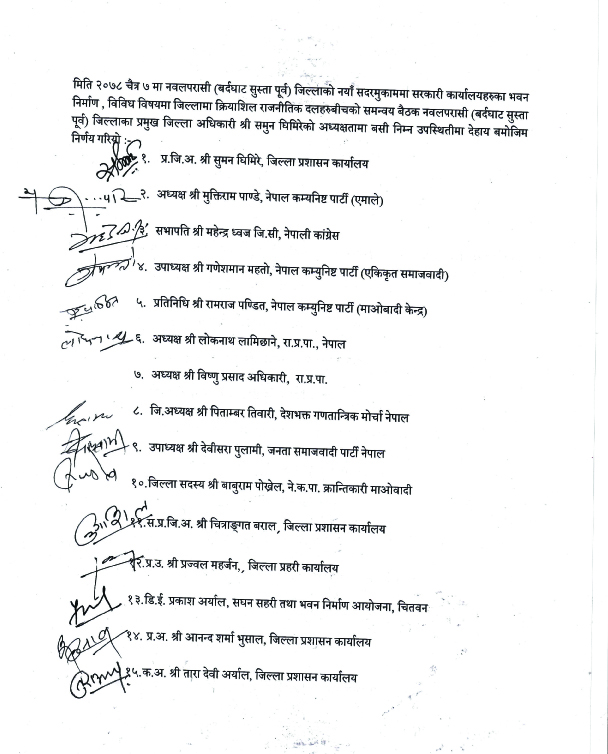 मिति २०७८ चैत्र ७ मा नवलपरासी (बर्दघाट सुस्ता पूर्व) जिल्लाको नयाँ सदरमुकाममा सरकारी कार्यालयहरुका भवन
निर्माण , विविध विषयमा जिल्लामा क्रियाशिल राजनीतिक दलहरुबीचको समन्वय बैठक नवलपरासी (बर्दघाट सुस्ता
पूर्व) जिल्लाका प्रमुख जिल्ला अधिकारी श्री समुन घिमिरेको अध्यक्षतामा बसी निम्न उपस्थितीमा देहाय बमोजिम
निर्णय गरियो :
१. प्र.जि.अ. श्री सुमन घिमिरे, जिल्ला प्रशासन कार्यालय
२. अध्यक्ष श्री मुक्तिराम पाण्डे, नेपाल कम्यनिष्ट पार्टी (एमाले)
३. सभापति श्री महेन्द्र ध्वज जि.सी, नेपाली कांग्रेस
४. उपाध्यक्ष श्री गणेशमान महतो, नेपाल कम्युनिष्ट पार्टी (एकिकृत समाजवादी)
५. प्रतिनिधि श्री रामराज पण्डित, नेपाल कम्युनिष्ट पार्टी (माओबादी केन्द्र)
६. अध्यक्ष श्री लोकनाथ लामिछाने, रा.प्र.पा., नेपाल
७. अध्यक्ष श्री विष्णु प्रसाद अधिकारी, रा.प्र.पा.
८. जि.अध्यक्ष श्री पिताम्बर तिवारी, देशभक्त गणतान्त्रिक मोर्चा नेपाल
९. उपाध्यक्ष श्री देवीसरा पुलामी, जनता समाजवादी पार्टी नेपाल
१०.जिल्ला सदस्य श्री बाबुराम पोख्रेल, ने.क.पा. क्रान्तिकारी माओवादी
११.स.प्र.जि.अ. श्री चित्राङ्गत बराल, जिल्ला प्रशासन कार्यालय
१२.प्र.उ. श्री प्रज्वल महर्जन,, जिल्ला प्रहरी कार्यालय
१३.डि.ई. प्रकाश अर्याल, सघन सहरी तथा भवन निर्माण आयोजना, चितवन
१४. प्र.अ. श्री आनन्द शर्मा भुसाल, जिल्ला प्रशासन कार्यालय
१५.क.अ. श्री तारा देवी अर्याल, जिल्ला प्रशासन कार्यालय